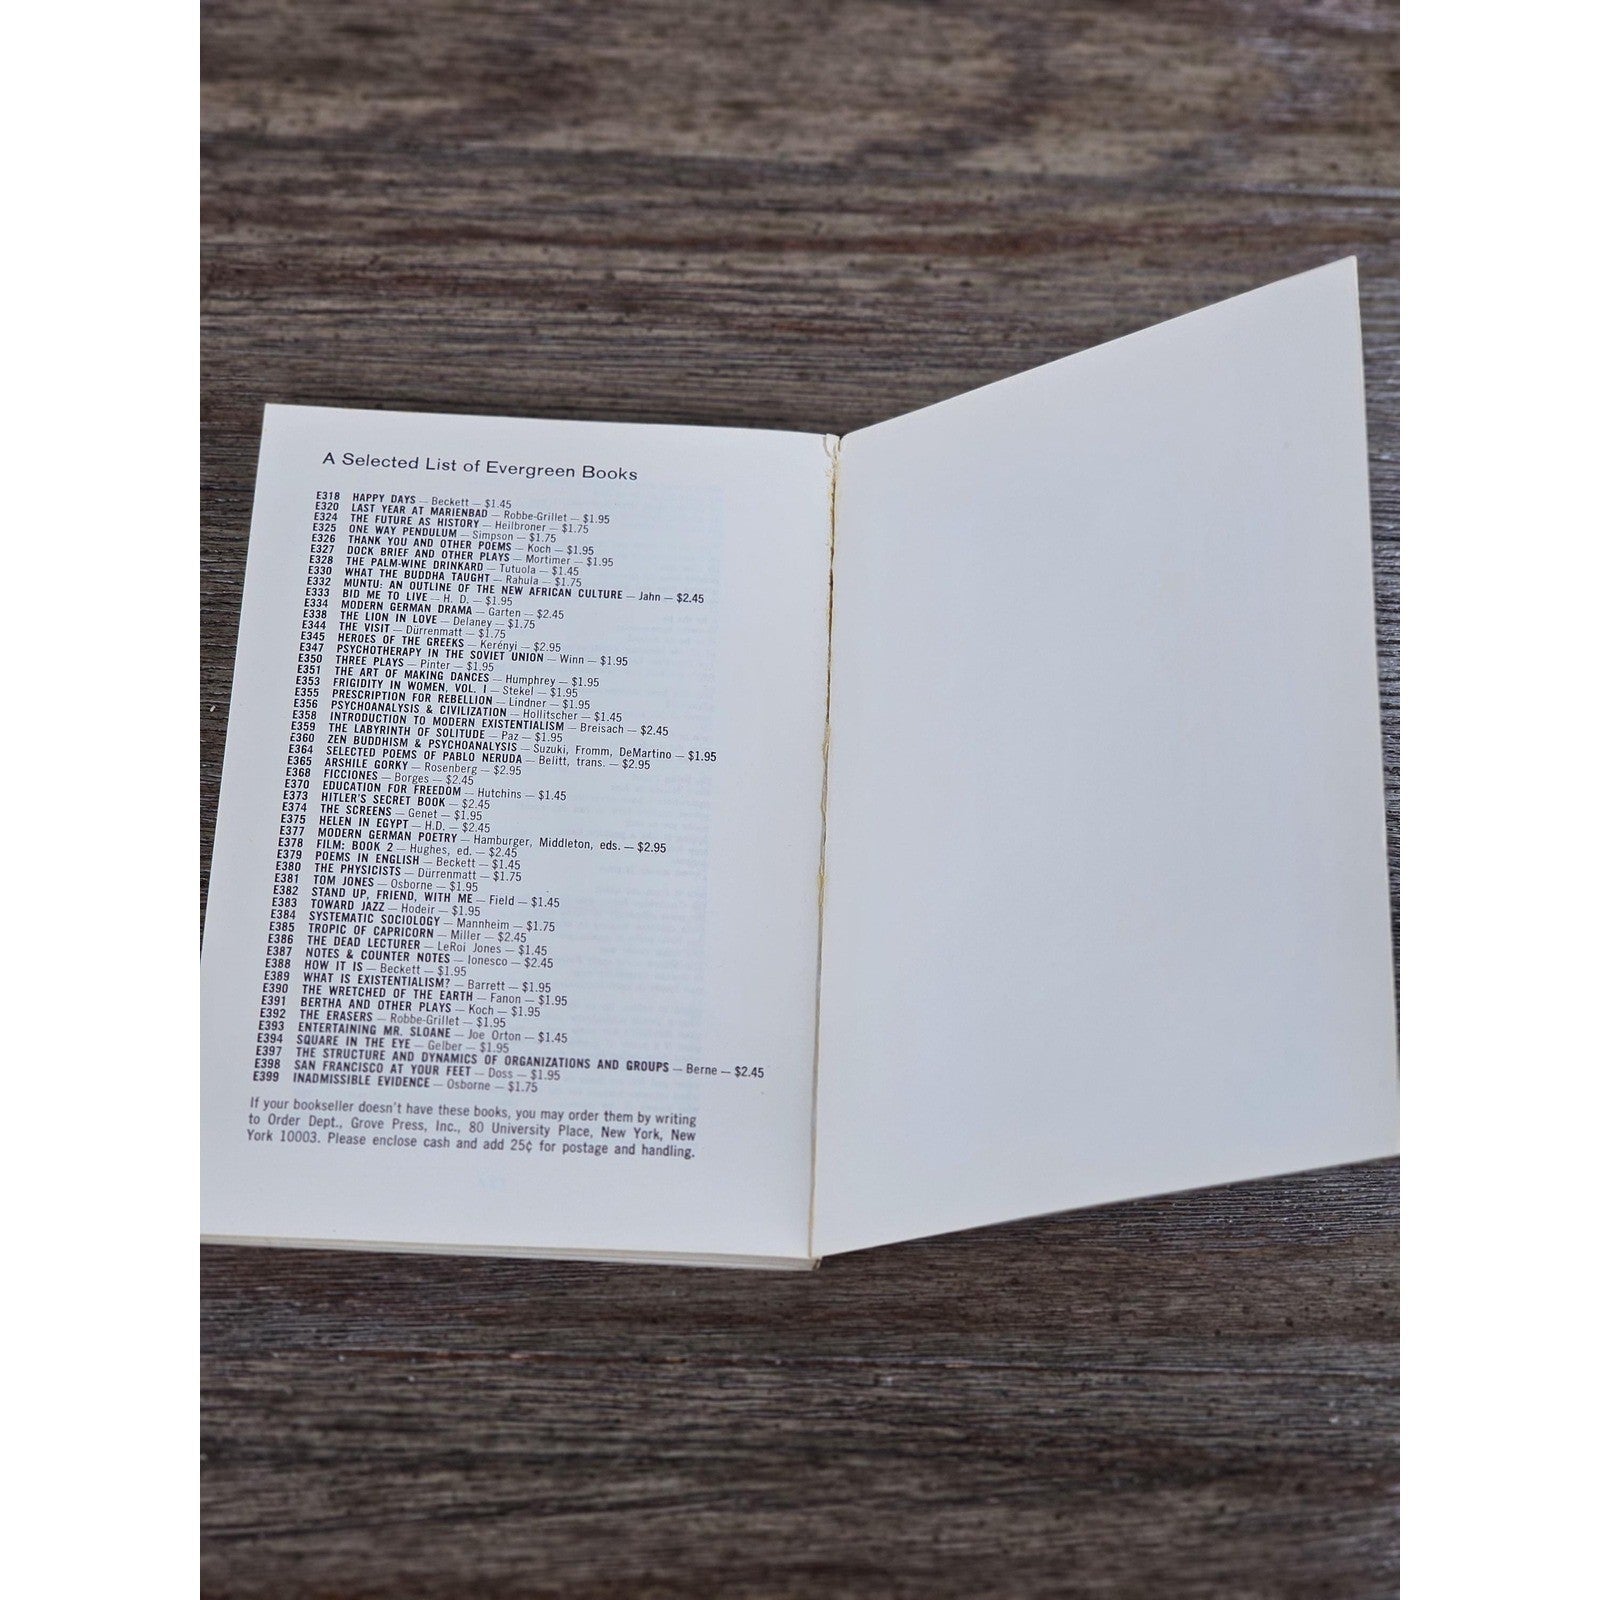 A Selected List of Evergreen Books
E318 HAPPY DAYS — Beckett — $1.45
E320 LAST YEAR AT MARIENBAD — Robbe-Grillet — $1.95
E324 THE FUTURE AS HISTORY — Heilbroner — $1.75
E325 ONE WAY PENDULUM — Simpson — $1.75
E326 THANK YOU AND OTHER POEMS — Koch — $1.95
E327 DOCK BRIEF AND OTHER PLAYS — Mortimer — $1.95
E328 THE PALM-WINE DRINKARD — Tutuola — $1.45
E330 WHAT THE BUDDHA TAUGHT — Rahula — $1.75
E332 MUNTU: AN OUTLINE OF THE NEW AFRICAN CULTURE — Jahn — $2.45
E333 BID ME TO LIVE — H. D. — $1.95
E334 MODERN GERMAN DRAMA — Garten — $2.45
E338 THE LION IN LOVE — Delaney — $1.75
E344 THE VISIT — Dürrenmatt — $1.75
E345 HEROES OF THE GREEKS — Kerényi — $2.95
E347 PSYCHOTHERAPY IN THE SOVIET UNION — Winn — $1.95
E350 THREE PLAYS — Pinter — $1.95
E351 THE ART OF MAKING DANCES — Humphrey — $1.95
E353 FRIGIDITY IN WOMEN, VOL. I — Stekel — $1.95
E355 PRESCRIPTION FOR REBELLION — Lindner — $1.95
E356 PSYCHOANALYSIS & CIVILIZATION — Hollitscher — $1.45
E358 INTRODUCTION TO MODERN EXISTENTIALISM — Breisach — $2.45
E359 THE LABYRINTH OF SOLITUDE — Paz — $1.95
E360 ZEN BUDDHISM & PSYCHOANALYSIS — Suzuki, Fromm, DeMartino — $1.95
E364 SELECTED POEMS OF PABLO NERUDA — Belitt, trans. — $2.95
E365 ARSHILE GORKY — Rosenberg — $2.95
E368 FICCIONES — Borges — $2.45
E370 EDUCATION FOR FREEDOM — Hutchins — $1.45
E373 HITLER'S SECRET BOOK — $2.45
E374 THE SCREENS — Genet — $1.95
E375 HELEN IN EGYPT — H.D. — $2.45
E377 MODERN GERMAN POETRY — Hamburger, Middleton, eds. — $2.95
E378 FILM: BOOK 2 — Hughes, ed. — $2.45
E379 POEMS IN ENGLISH — Beckett — $1.45
E380 THE PHYSICISTS — Dürrenmatt — $1.75
E381 TOM JONES — Osborne — $1.95
E382 STAND UP, FRIEND, WITH ME — Field — $1.45
E383 TOWARD JAZZ — Hodeir — $1.95
E384 SYSTEMATIC SOCIOLOGY — Mannheim — $1.75
E385 TROPIC OF CAPRICORN — Miller — $2.45
E386 THE DEAD LECTURER — LeRoi Jones — $1.45
E387 NOTES & COUNTER NOTES — Ionesco — $2.45
E388 HOW IT IS — Beckett — $1.95
E389 WHAT IS EXISTENTIALISM? — Barrett — $1.95
E390 THE WRETCHED OF THE EARTH — Fanon — $1.95
E391 BERTHA AND OTHER PLAYS — Koch — $1.95
E392 THE ERASERS — Robbe-Grillet — $1.95
E393 ENTERTAINING MR. SLOANE — Joe Orton — $1.45
E394 SQUARE IN THE EYE — Gelber — $1.95
E397 THE STRUCTURE AND DYNAMICS OF ORGANIZATIONS AND GROUPS — Berne — $2.45
E398 SAN FRANCISCO AT YOUR FEET — Doss — $1.95
E399 INADMISSIBLE EVIDENCE — Osborne — $1.75
If your bookseller doesn't have these books, you may order them by writing
to Order Dept., Grove Press, Inc., 80 University Place, New York, New
York 10003. Please enclose cash and add 25¢ for postage and handling.